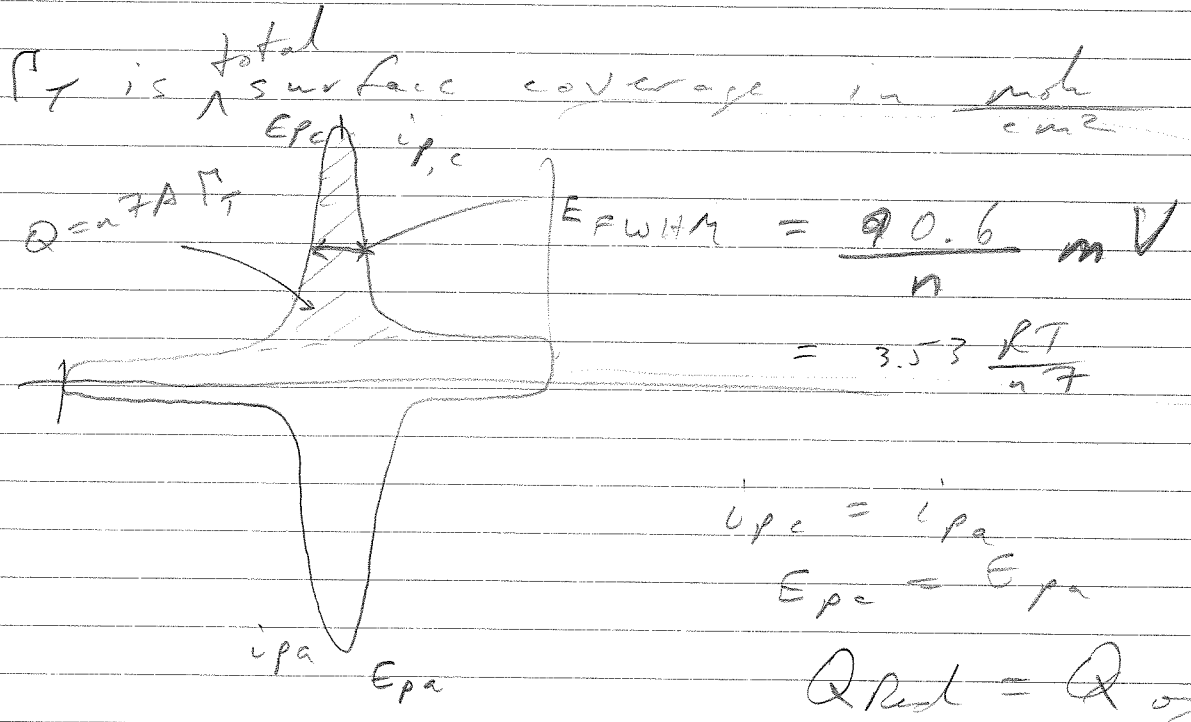 Γ_T is total surface coverage in mol/cm²
E_pc i_p,c
Q = nFAΓ_T
E_FWHM = 90.6/n mV
= 3.53 RT/nF
i_pc = i_pa
E_pc = E_pa
i_pa
E_pa
Q_Red = Q_o